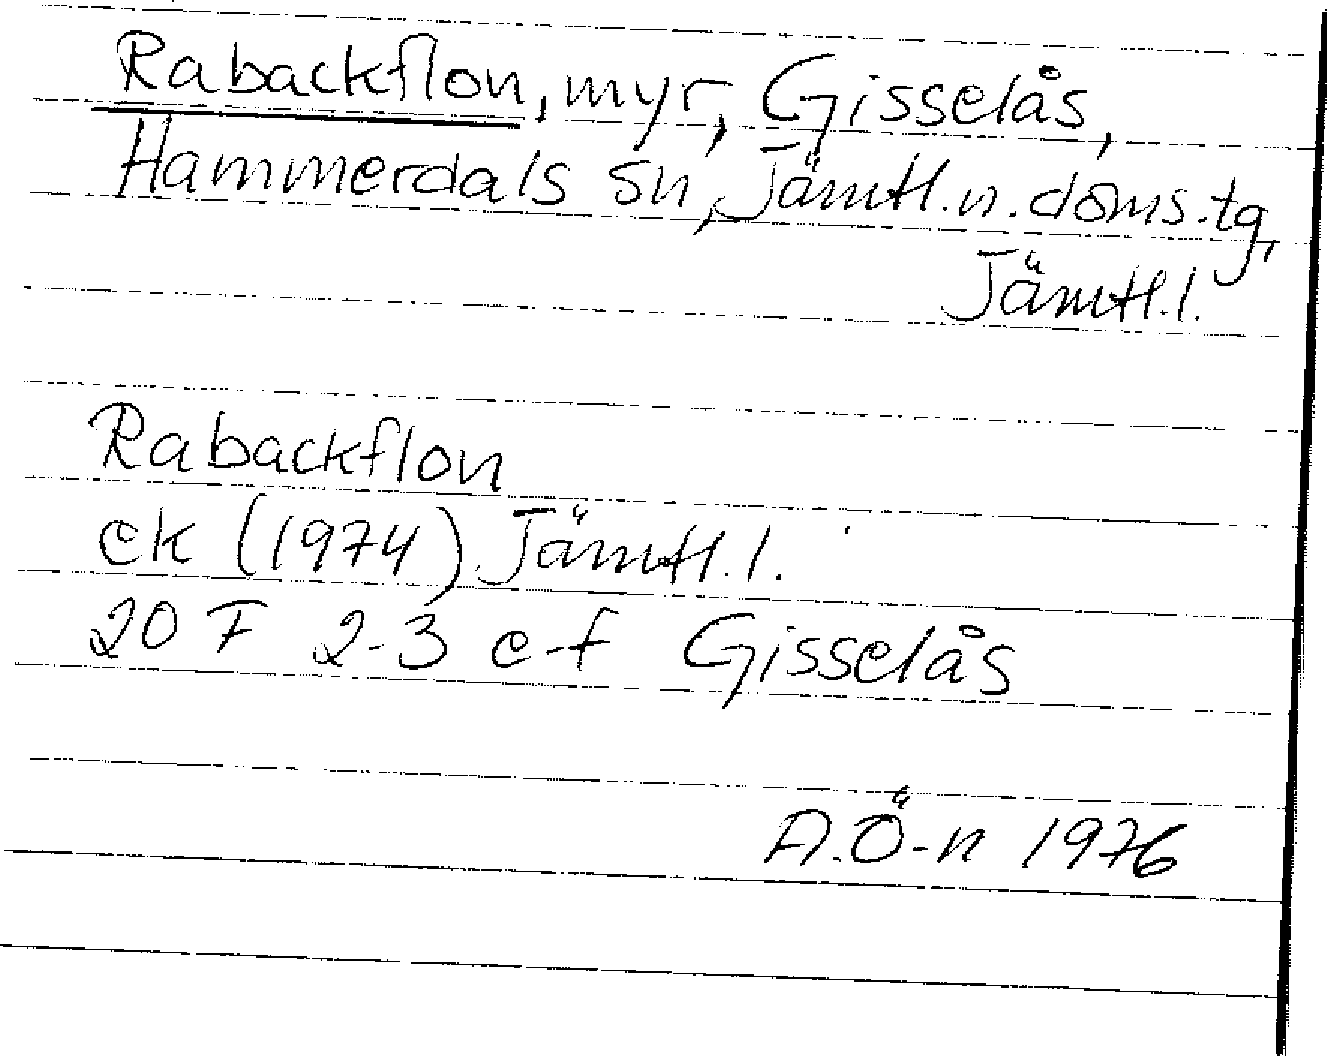 Rabackflon, myr, Gisselås,
Hammerdals sn, Jämtl.n.doms.tg,
Jämtl.l.
Rabackflon
ek (1974) Jämtl.l.
20 F 2-3 e-f Gisselås
A.Ö-n 1976